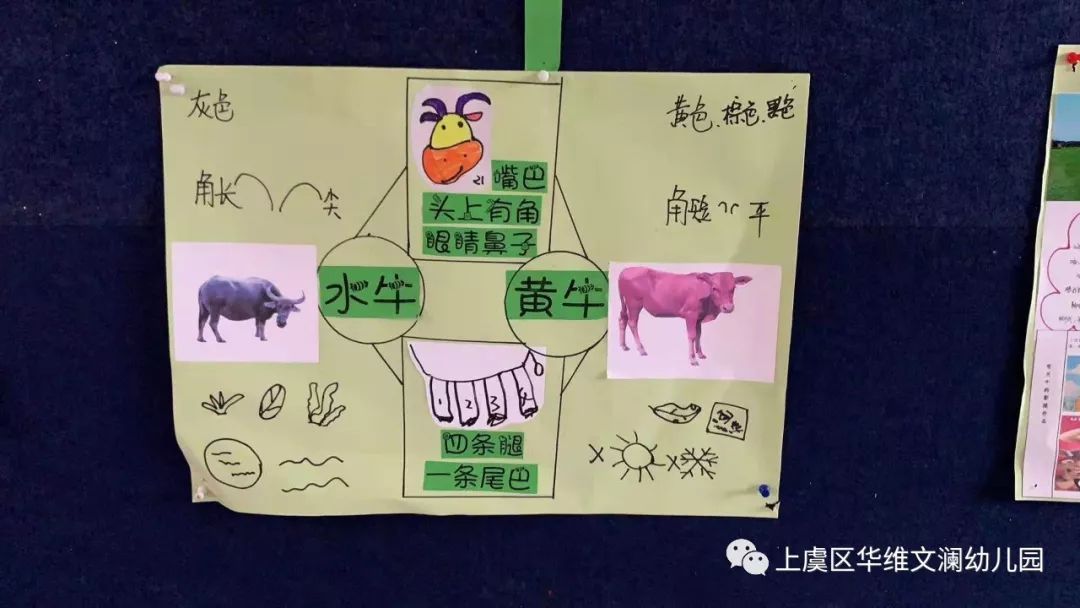 灰色
黄色、棕色、黑色
嘴巴
头上有角
眼睛鼻子
角长 尖
角短 平
水牛
黄牛
1 2 3 4
四条腿
一条尾巴
上虞区华维文澜幼儿园